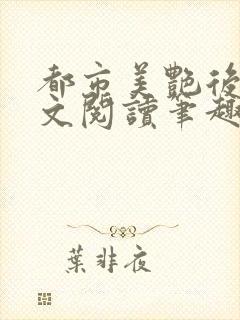 都市美艷後
文閱讀筆趣
葉非夜